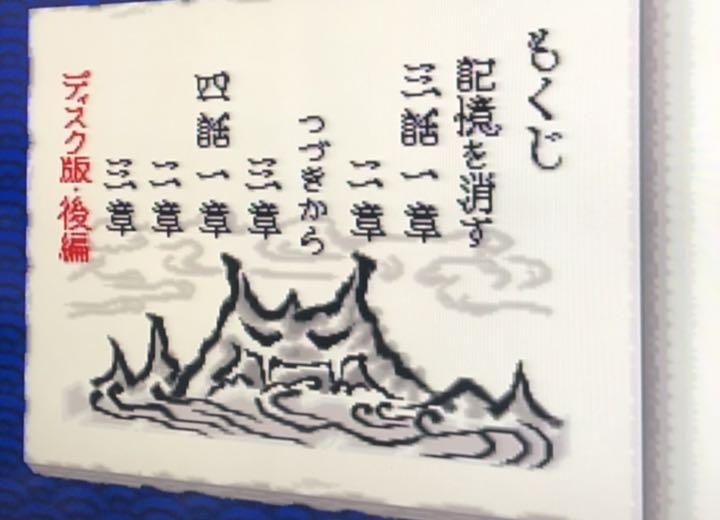 もくじ
記憶を消す
三話 一章
二章
つづきから
三章
四話 一章
二章
三章
ディスク版・後編